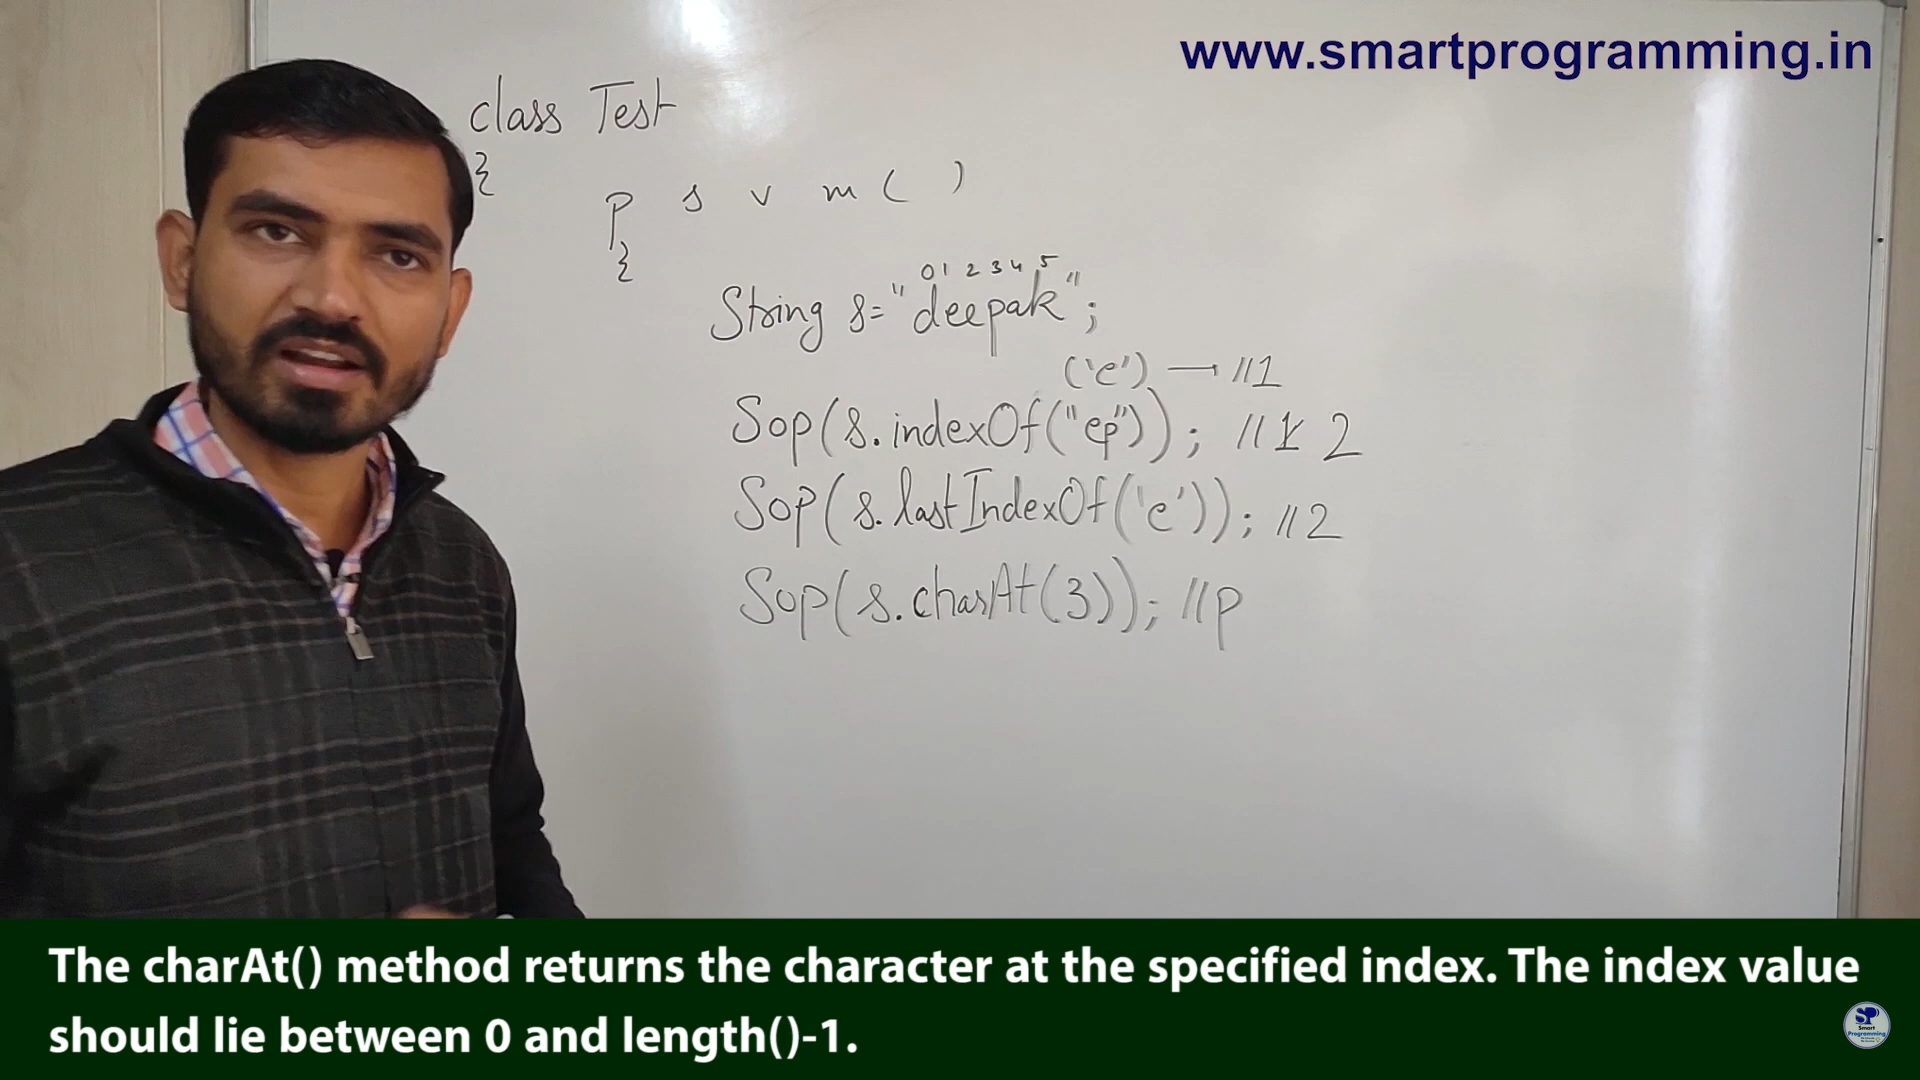 www.smartprogramming.in
class Test
{
p s v m ( )
{
0 1 2 3 4 5
String s= "deepak";
('e') → //1
Sop(s.indexOf("ep")); //1 2
Sop(s.lastIndexOf('e')); //2
Sop(s.charAt(3)); //p
The charAt() method returns the character at the specified index. The index value
should lie between 0 and length()-1.
SP
Smart
Programming